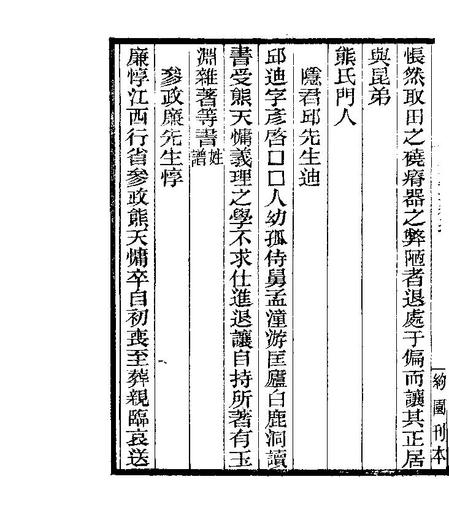 悵然取田之磽瘠器之弊陋者退處于偏而讓其正居
與昆弟
熊氏門人
隱君邱先生迪
邱迪字彥啓□□人幼孤侍舅孟潼游匡廬白鹿洞讀
書受熊天慵義理之學不求仕進退讓自持所著有玉
淵雜著等書姓譜
參政廉先生惇
廉惇江西行省參政熊天慵卒自初喪至葬親臨哀送
約園刊本